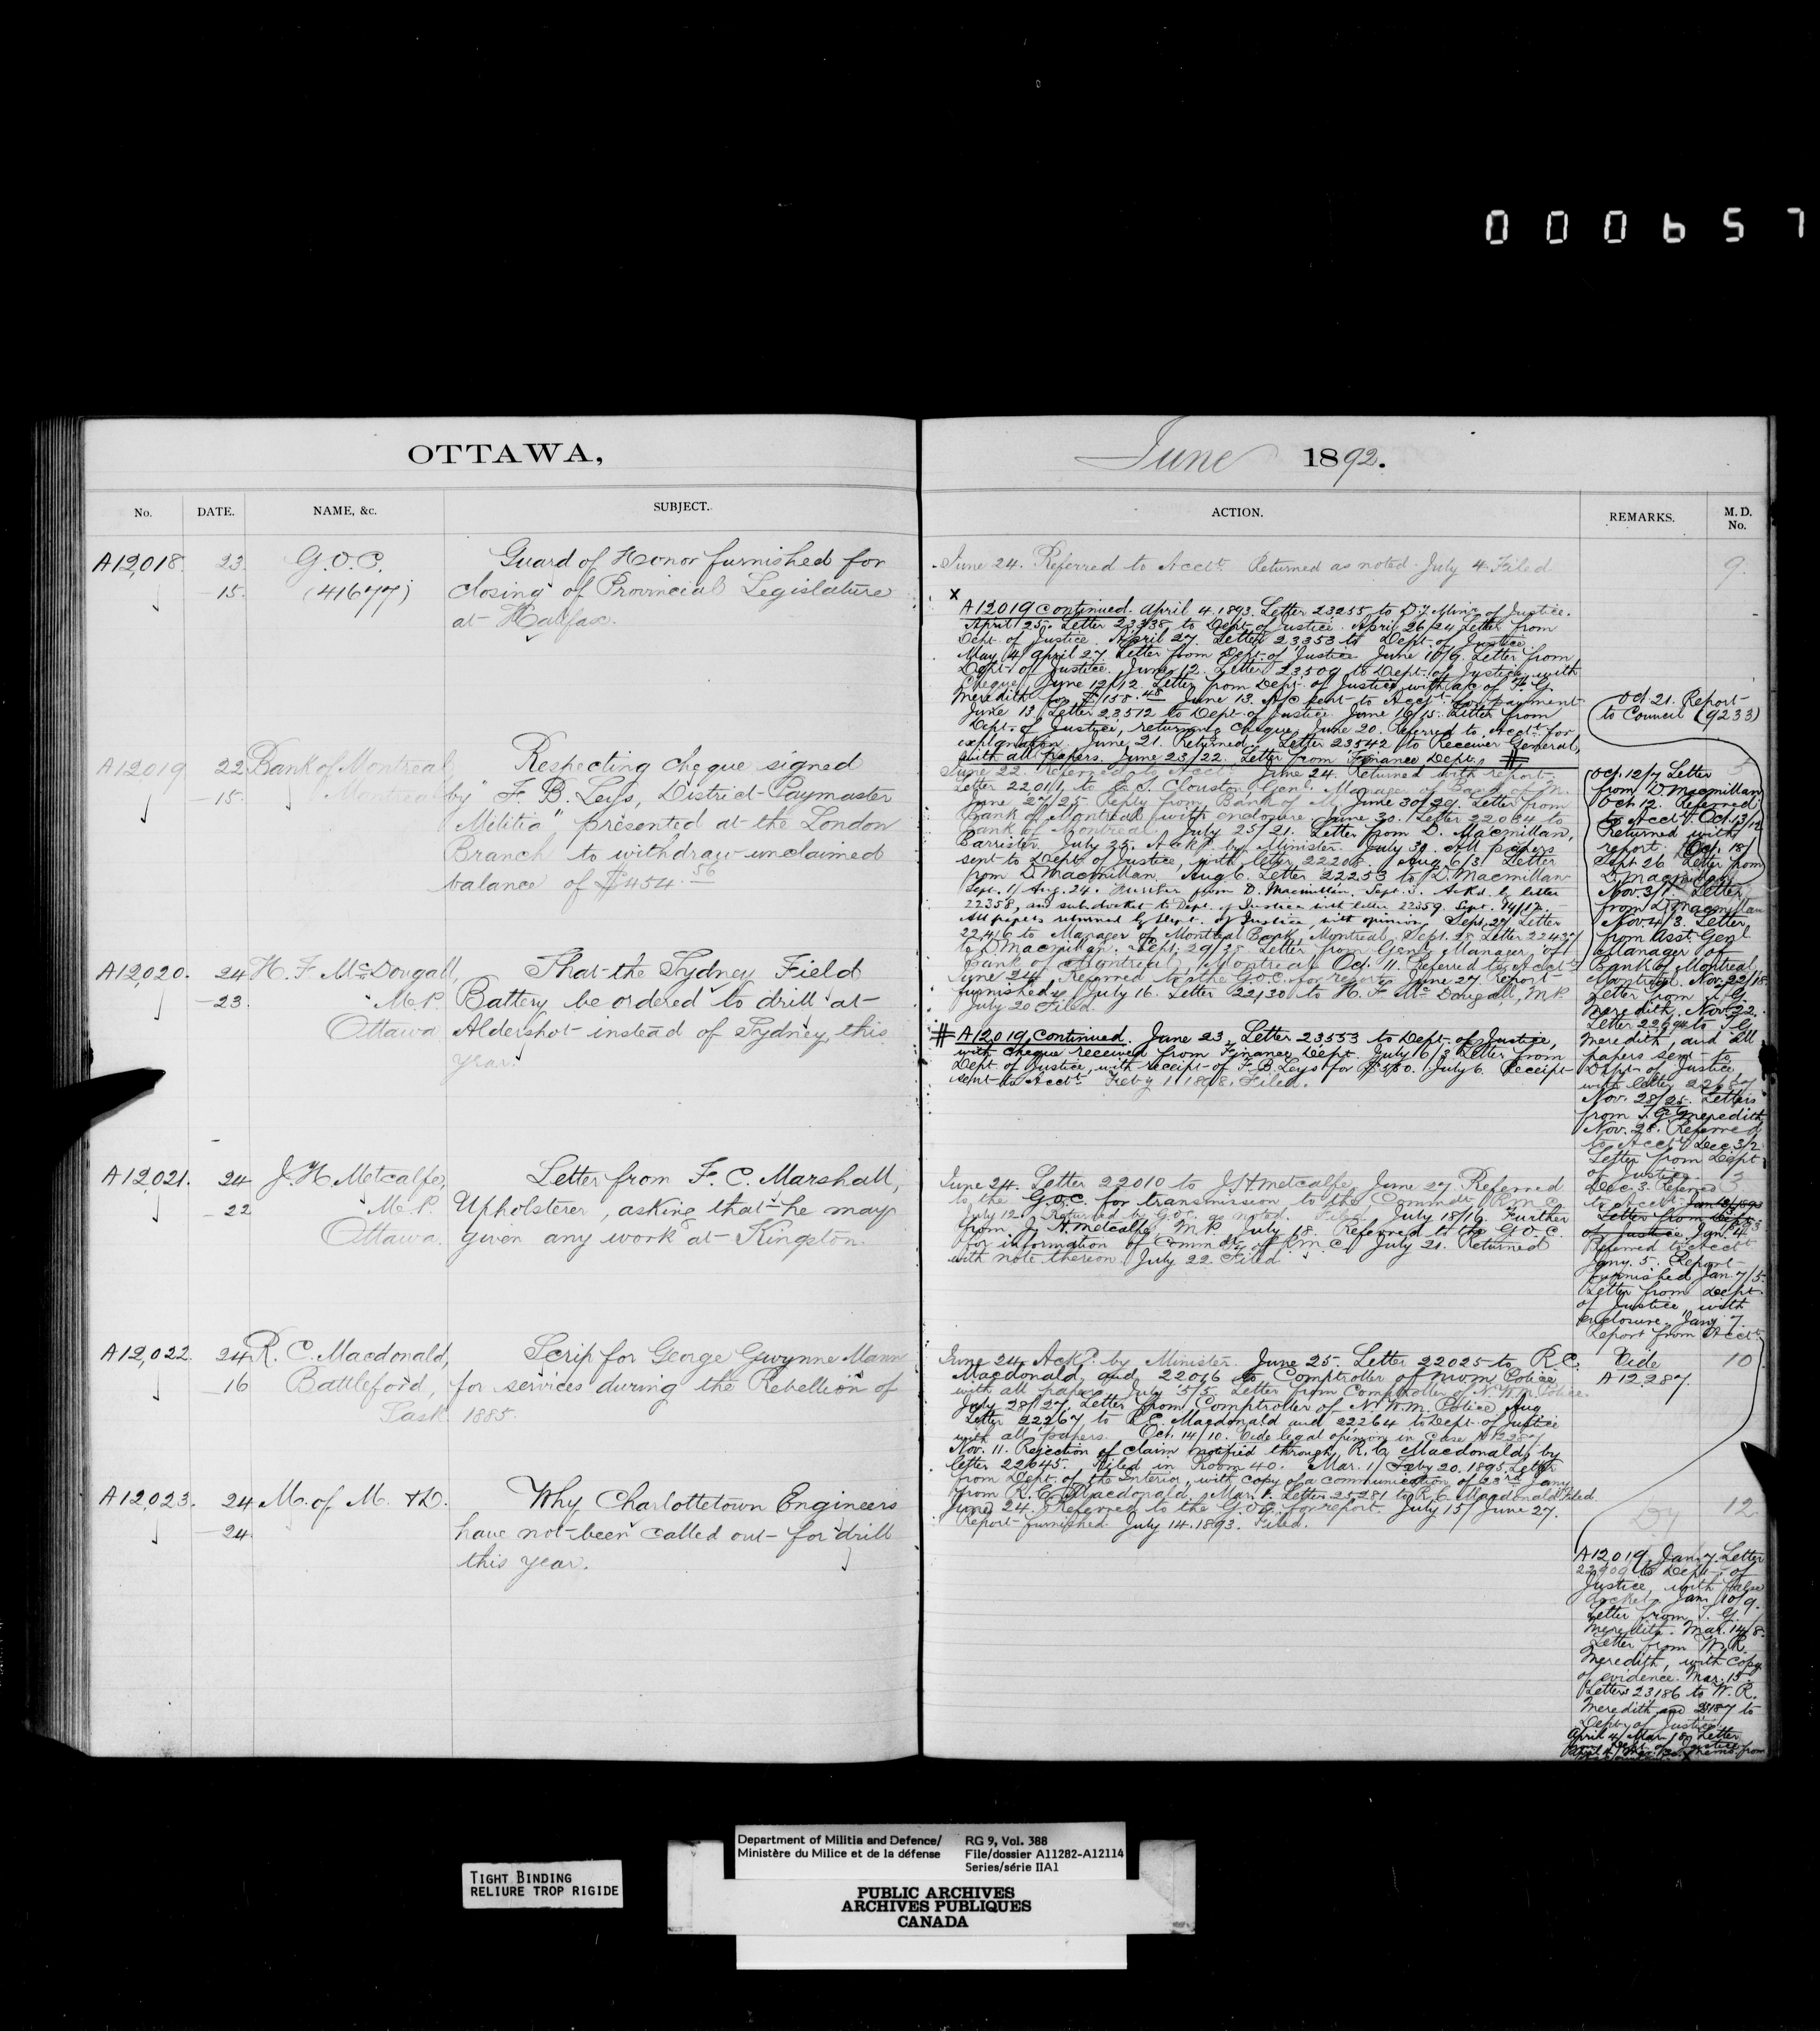 000657
OTTAWA,
No. DATE. NAME, &c. SUBJECT.
A12,018. 23. G.O.C. Guard of Honor furnished for
15. (41677) closing of Provincial Legislature
at Halifax.
A12019 22 Bank of Montreal, Respecting cheque signed
15. Montreal by "F. B. Leys, District Paymaster
Militia" presented at the London
Branch to withdraw unclaimed
balance of $454.56
A12,020. 24 H. F. McDougall, That the Sydney Field
23. M.P. Battery be ordered to drill at
Ottawa Aldershot instead of Sydney, this
year.
A12,021. 24 J. H. Metcalfe, Letter from F. C. Marshall,
22 M.P. Upholsterer, asking that he may
Ottawa. given any work at Kingston.
A12,022. 24 R. C. Macdonald, Scrip for George Gwynne Mann
16 Battleford, for services during the Rebellion of
Sask. 1885.
A12,023. 24 M. of M. & D. Why Charlottetown Engineers
24. have not been called out for drill
this year.
June 1892.
ACTION. REMARKS. M. D. No.
June 24. Referred to Acct. Returned as noted July 4. Filed 9.
x
A12019 continued. April 4. 1893. Letter 23255 to Dy. Minr. of Justice.
April 25. Letter to Dept. of Justice. April 26/24 Letter from
Dept. of Justice. April 27. Letter 23353 to Dept. of Justice
May 4/April 27 Letter from Dept. of Justice June 10/9. Letter from
Dept. of Justice. June 12. Letter 23509 to Dept. of Justice with
Cheque June 12/12 Letter from Dept. of Justice with a/c of
Meredith for $158.48 June 13. A/c sent to Acct. for payment
June 13 Letter 23512 to Dept. of Justice June 16/15. Letter from
Dept. of Justice, returning cheque June 20. Referred to Acct. for
explanation. June 21. Returned. Letter 23542 to Receiver General,
with all papers. June 23/22. Letter from Finance Dept. #
June 22. Referred to Acct. June 24. Returned with report.
Letter 22011, to E. S. Clouston Genl. Manager of Bank of M.
June 27/25 Reply from Bank of M. June 30/29. Letter from
Bank of Montreal with enclosure June 30. Letter 22064 to
Bank of Montreal. July 25/21. Letter from D. Macmillan,
Barrister. July 25. Ackd. by Minister. July 30. All papers
sent to Dept. of Justice, with letter 22208. Aug 6/3. Letter
from D. Macmillan. Aug 6. Letter 22253 to D. Macmillan
Sept. 1/Aug. 24. Further from D. Macmillan. Sept. 3. Ackd. by letter
22358, and sub-docket to Dept. of Justice with letter 22359. Sept. 14/12.
All papers returned by Dept. of Justice, with opinion. Sept. 27 Letter
22416 to Manager of Montreal Bank, Montreal. Sept. 28 Letter 22427
to D. Macmillan. Sept. 29/28 Letter from Genl. Manager of
Bank of Montreal, Montreal. Oct. 11. Referred to Acct.
June 24. Referred to the G.O.C. for report June 27. Report
furnished. July 16. Letter 22130 to H. F. McDougall, M.P.
July 20 Filed.
# A12,019, continued. June 23, Letter 23553 to Dept. of Justice,
with cheque received from Finance Dept. July 6/3 Letter from
Dept. of Justice, with receipt of F. B. Leys for $380. July 6. Receipt
sent to Acct. Feby 1. 1898. Filed.
June 24. Letter 22010 to J. H. Metcalfe June 27 Referred
to the G.O.C. for transmission to the Commdt. R.M.C.
July 12. Returned by G.O.C. as noted. Filed. July 18/16. Further
from J. H. Metcalfe, M.P. July 18. Referred to the G.O.C.
for information of Commdt. of R.M.C. July 21. Returned
with note thereon. July 22. Filed 3
June 24. Ackd. by Minister. June 25. Letter 22025 to R.C.
Macdonald, and 22016 to Comptroller of N.W.M. Police
with all papers. July 5/5. Letter from Comptroller of N.W.M. Police.
July 28/27. Letter from Comptroller of N.W.M. Police Aug
Letter 22267 to R.C. Macdonald and 22264 to Dept. of Justice
with all papers. Oct. 14/10. Vide legal opinion in case A12287
Nov. 11. Rejection of claim notified through R. C. Macdonald, by
letter 22645. Filed in Room 40. Mar. 1/Feby 20. 1895. Letter
from Dept. of the Interior, with copy of a communication of 23rd Jany
from R. C. Macdonald. Mar. 1. Letter 25281 to R. C. Macdonald Filed
June 24. Referred to the G.O.C. for report. July 15/June 27.
Report furnished. July 14. 1893. Filed.
Vide 10
A12287.
12
Oct. 21. Report
to Council (9233)
Oct. 12/7 Letter
from D. Macmillan
Oct. 12. Referred
to Acct. Oct. 13/12
Returned with
report. Oct. 18/
Sept 26 Letter from
D. Macmillan
Nov. 3/1 Letter
from D. Macmillan
Nov. 4/3. Letter
from Asst. Genl
Manager of
Bank of Montreal
Montreal. Nov. 22/18
Letter from T. G.
Meredith, Nov. 22.
Letter to T. G.
Meredith, and all
papers sent to
Dept. of Justice,
with letter 22687
Nov. 28/25. Letters
from T. G. Meredith
Nov. 28. Referred
to Acct. Dec. 3/2
Letter from Dept.
of Justice.
Dec. 3. Referred
to Acct.
Letter from Dept.
of Justice Jan. 4.
Referred to Acct.
Jany. 5. Report
furnished Jan 7/5.
Letter from Dept.
of Justice, with
enclosure. Jany 7.
Report from Acct.
A12,019, Jan. 7. Letter
22909 to Dept. of
Justice, with false
docket. Jan. 10/9.
Letter from T. G.
Meredith. Mar. 14/8.
Letter from W. R.
Meredith, with copy
of evidence. Mar. 15
Letters 23186 to W. R.
Meredith and 23187 to
Dept. of Justice
April 4/Mar. Letter
from Dept. of Justice
TIGHT BINDING
RELIURE TROP RIGIDE
Department of Militia and Defence/ RG 9, Vol. 388
Ministère du Milice et de la défense File/dossier A11282-A12114
Series/série IIA1
PUBLIC ARCHIVES
ARCHIVES PUBLIQUES
CANADA